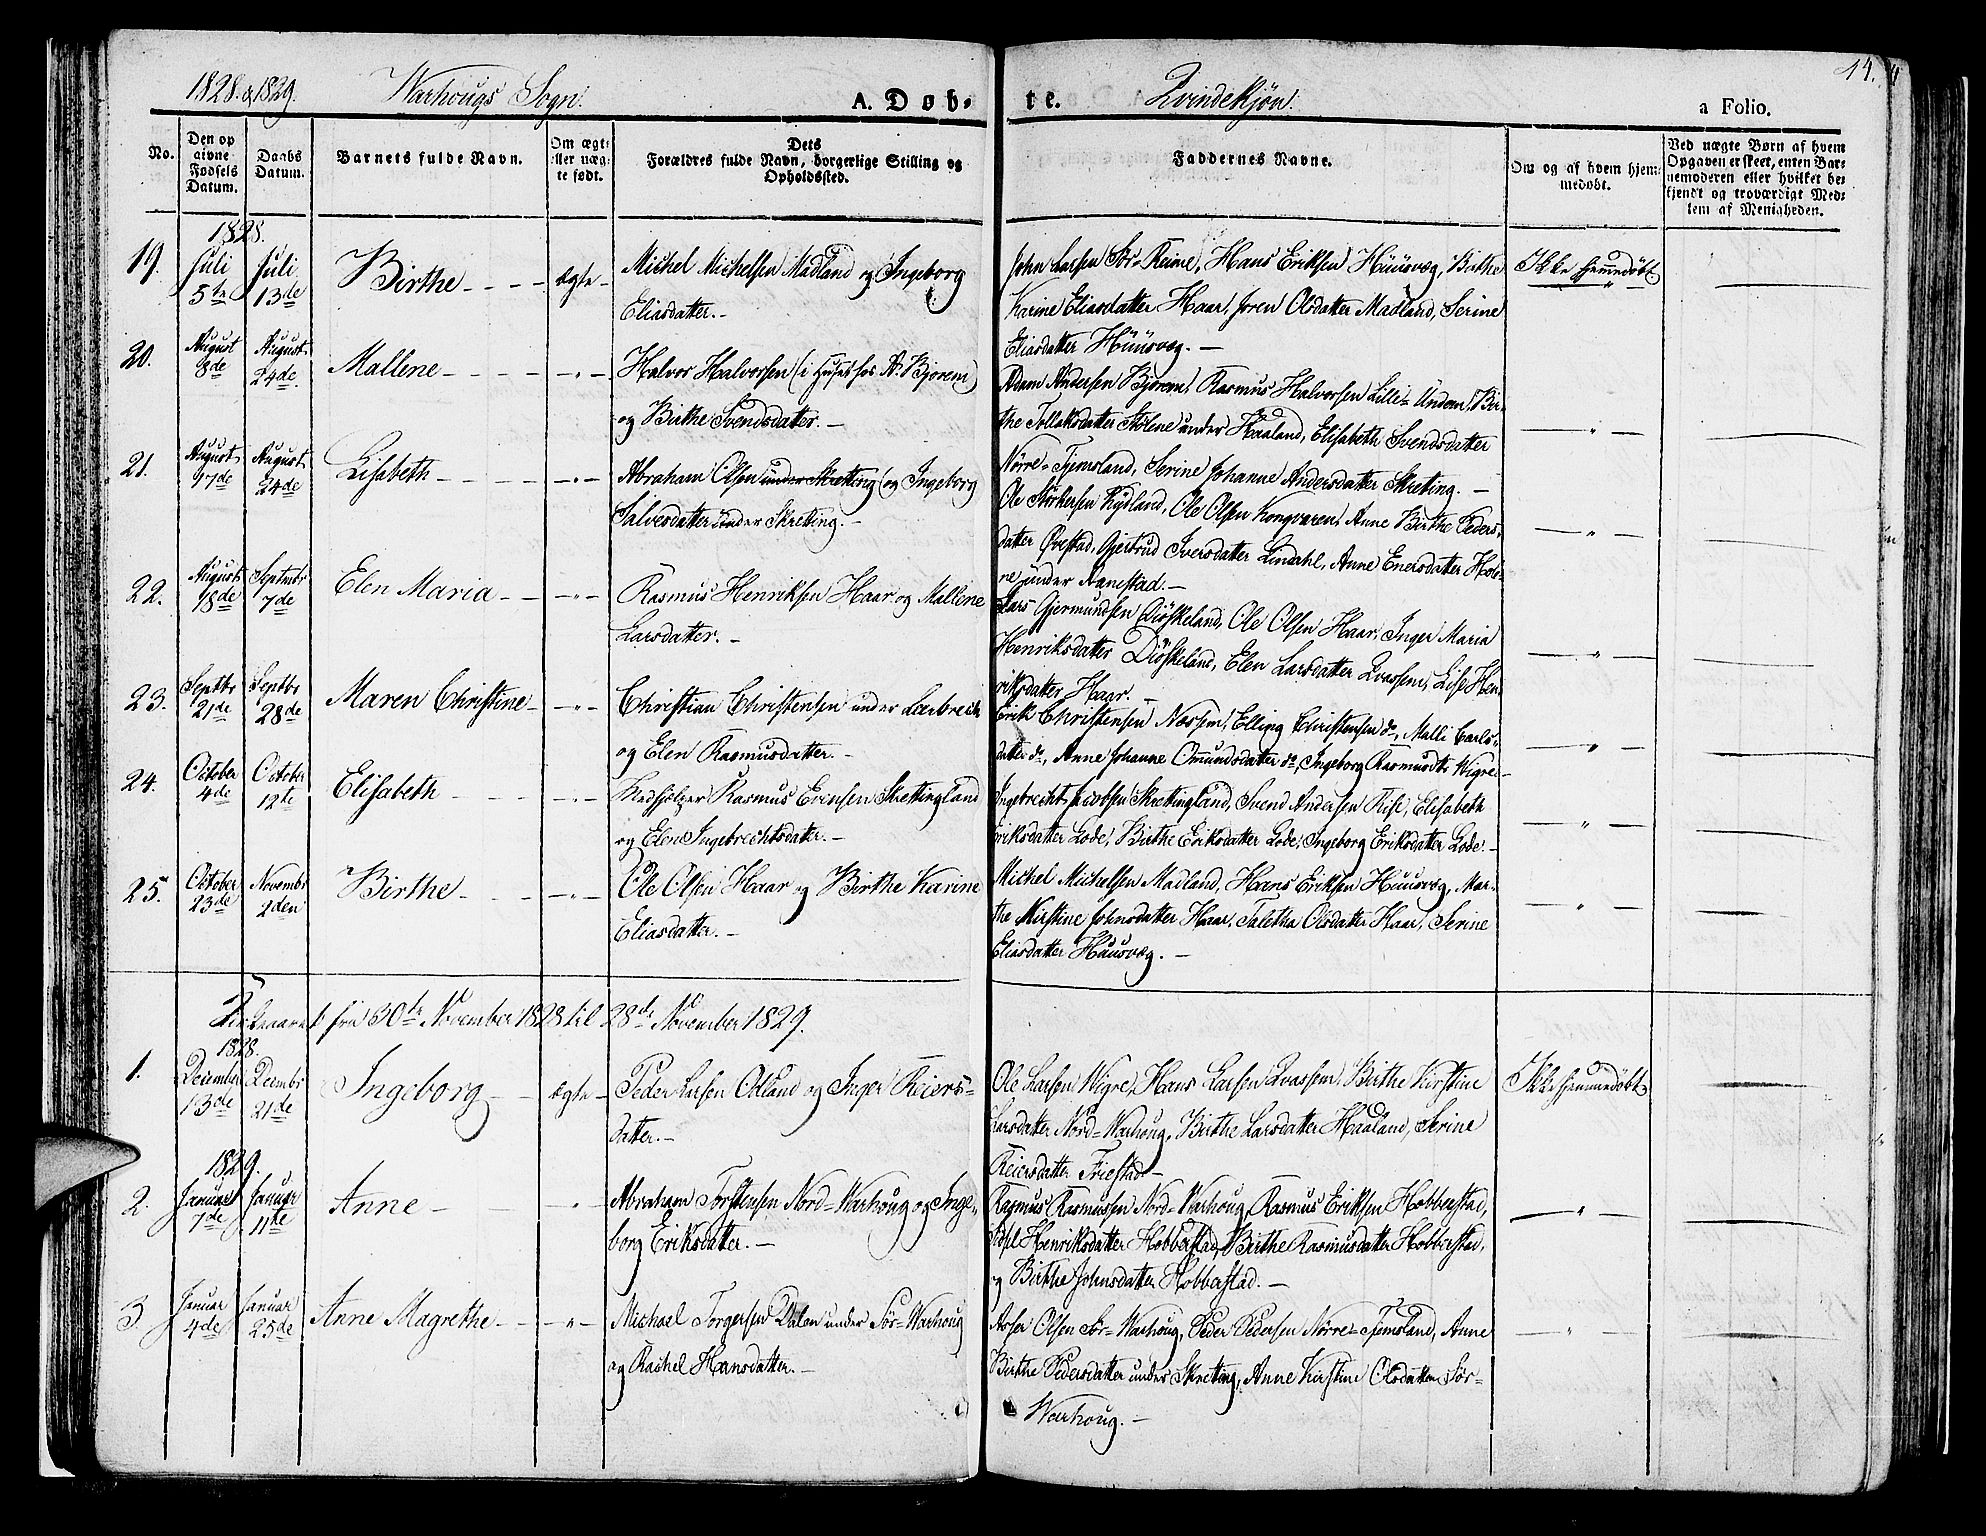 1828 & 1829. Warhougs Sogn. A. Døb-
te. Qvindekjøn. a Folio. 14.
No.
Den op
givne
Fødsels
Datum.
Daabs
Datum.
Barnets fulde Navn.
Om ægte
eller uæg-
te født.
Dets
Forældres fulde Navn, borgerlige Stilling og
Opholdssted.
Faddernes Navne.
Om og af hvem hjem-
medøbt.
Ved uægte Børn af hvem
Opgaven er skeet, enten Bar-
nemoderen eller hvilket be-
kjendt og troværdigt Med-
lem af Menigheden.
1828.
19. Juli 5te Juli 13de Birthe ægte
Michel Michelsen Madland og Ingeborg
Eliasdatter.
John Larsen Sör-Reime, Hans Eriksen Hüüsvæg, Birthe
Karine Eliasdatter Haar, Joren Olsdatter Madland, Serine
Eliasdatter Hüüsvæg.
Ikke hjemmedöbt.
20. August 8de August 24de Mallene
Halvor Halvorsen (i Huset hos A. Bjorem)
og Birthe Svendsdatter.
Adam Andersen Bjorem, Rasmus Halvorsen Lille-Undem, Bir-
the Tollaksdatter Stølene under Haaland, Elisabeth Svendsdatter
Nörre-Tjemsland, Serine Johanne Andersdatter Skreting.
21. August 17de August 24de Lisabeth
Abraham Olsen under Skretting og Ingeborg
Salvesdatter under Skretting.
Ole Störkersen Kydland, Ole Olsen Kongvaren, Anne Birthe Peders-
datter Qvestad, Gjertrud Iversdatter Lindahl, Anne Enersdatter Hole-
ne under Aanestad.
22. August 18de Septmbr 7de Elen Maria
Rasmus Henriksen Haar og Mallene
Larsdatter.
Lars Gjermundsen Diöskeland, Ole Olsen Haar, Inger Maria
Henriksdatter Diöskeland, Elen Larsdatter Qvassem, Lise Hen-
riksdatter Haar.
23. Septbr 21de Septbr 28de Maren Christine
Christian Christensen under Lerbrech
og Elen Rasmusdatter.
Erik Christensen Noesem, Elling Christensen do, Malli Carls-
datter do, Anne Johanne Omundsdatter do, Ingeborg Rasmusdtr Wigre.
24. October 4de October 12te Elisabeth
Medhjelper Rasmus Evensen Skrettingland
og Elen Ingebrechtsdatter.
Ingebrecht Jacobsen Skrettingland, Svend Andersen Rise, Elisabeth
Eriksdatter Lode, Birthe Eriksdatter Lode, Ingeborg Eriksdatter Lode.
25. October 23de Novembr 2den Birthe
Ole Olsen Haar og Birthe Karine
Eliasdatter.
Michel Michelsen Madland, Hans Eriksen Huusvæg, Mar-
the Kirstine Johnsdatter Haar, Taletha Olsdatter Haar, Serine
Eliasdatter Hüüsvæg.
Kirkeaaret fra 30te November 1828 til 28de November 1829.
1828.
1. December 13de Decmbr 21de Ingeborg ægte
Peder Larsen Ödland og Inger Reiers-
datter.
Ole Larsen Wigre, Hans Larsen Qvassem, Birthe Kirstine
Larsdatter Nord-Warhoug, Birthe Larsdatter Haaland, Serine
Reiersdatter Friestad
Ikke hjemmedöbt
1829.
2. Januar 7de Januar 11te Anne
Abraham Torstensen Nord-Warhoug og Inge-
borg Eriksdatter.
Rasmus Rasmussen Nord-Warhoug, Rasmus Eriksen Hobberstad,
Sidsel Henriksdatter Hobberstad, Birthe Rasmusdatter Hobberstad,
og Birthe Johnsdatter Hobberstad.
3. Januar 4de Januar 25de Anne Magrethe
Michael Torgersen Dalen under Sör-Warhoug
og Rachel Hansdatter.
Aoser Olsen Sör-Warhoug, Peder Pedersen Nörre-Tjemsland, Anne
Birthe Pedersdatter under Skretting, Anne Kirstine Olsdatter Sör-
Warhoug.